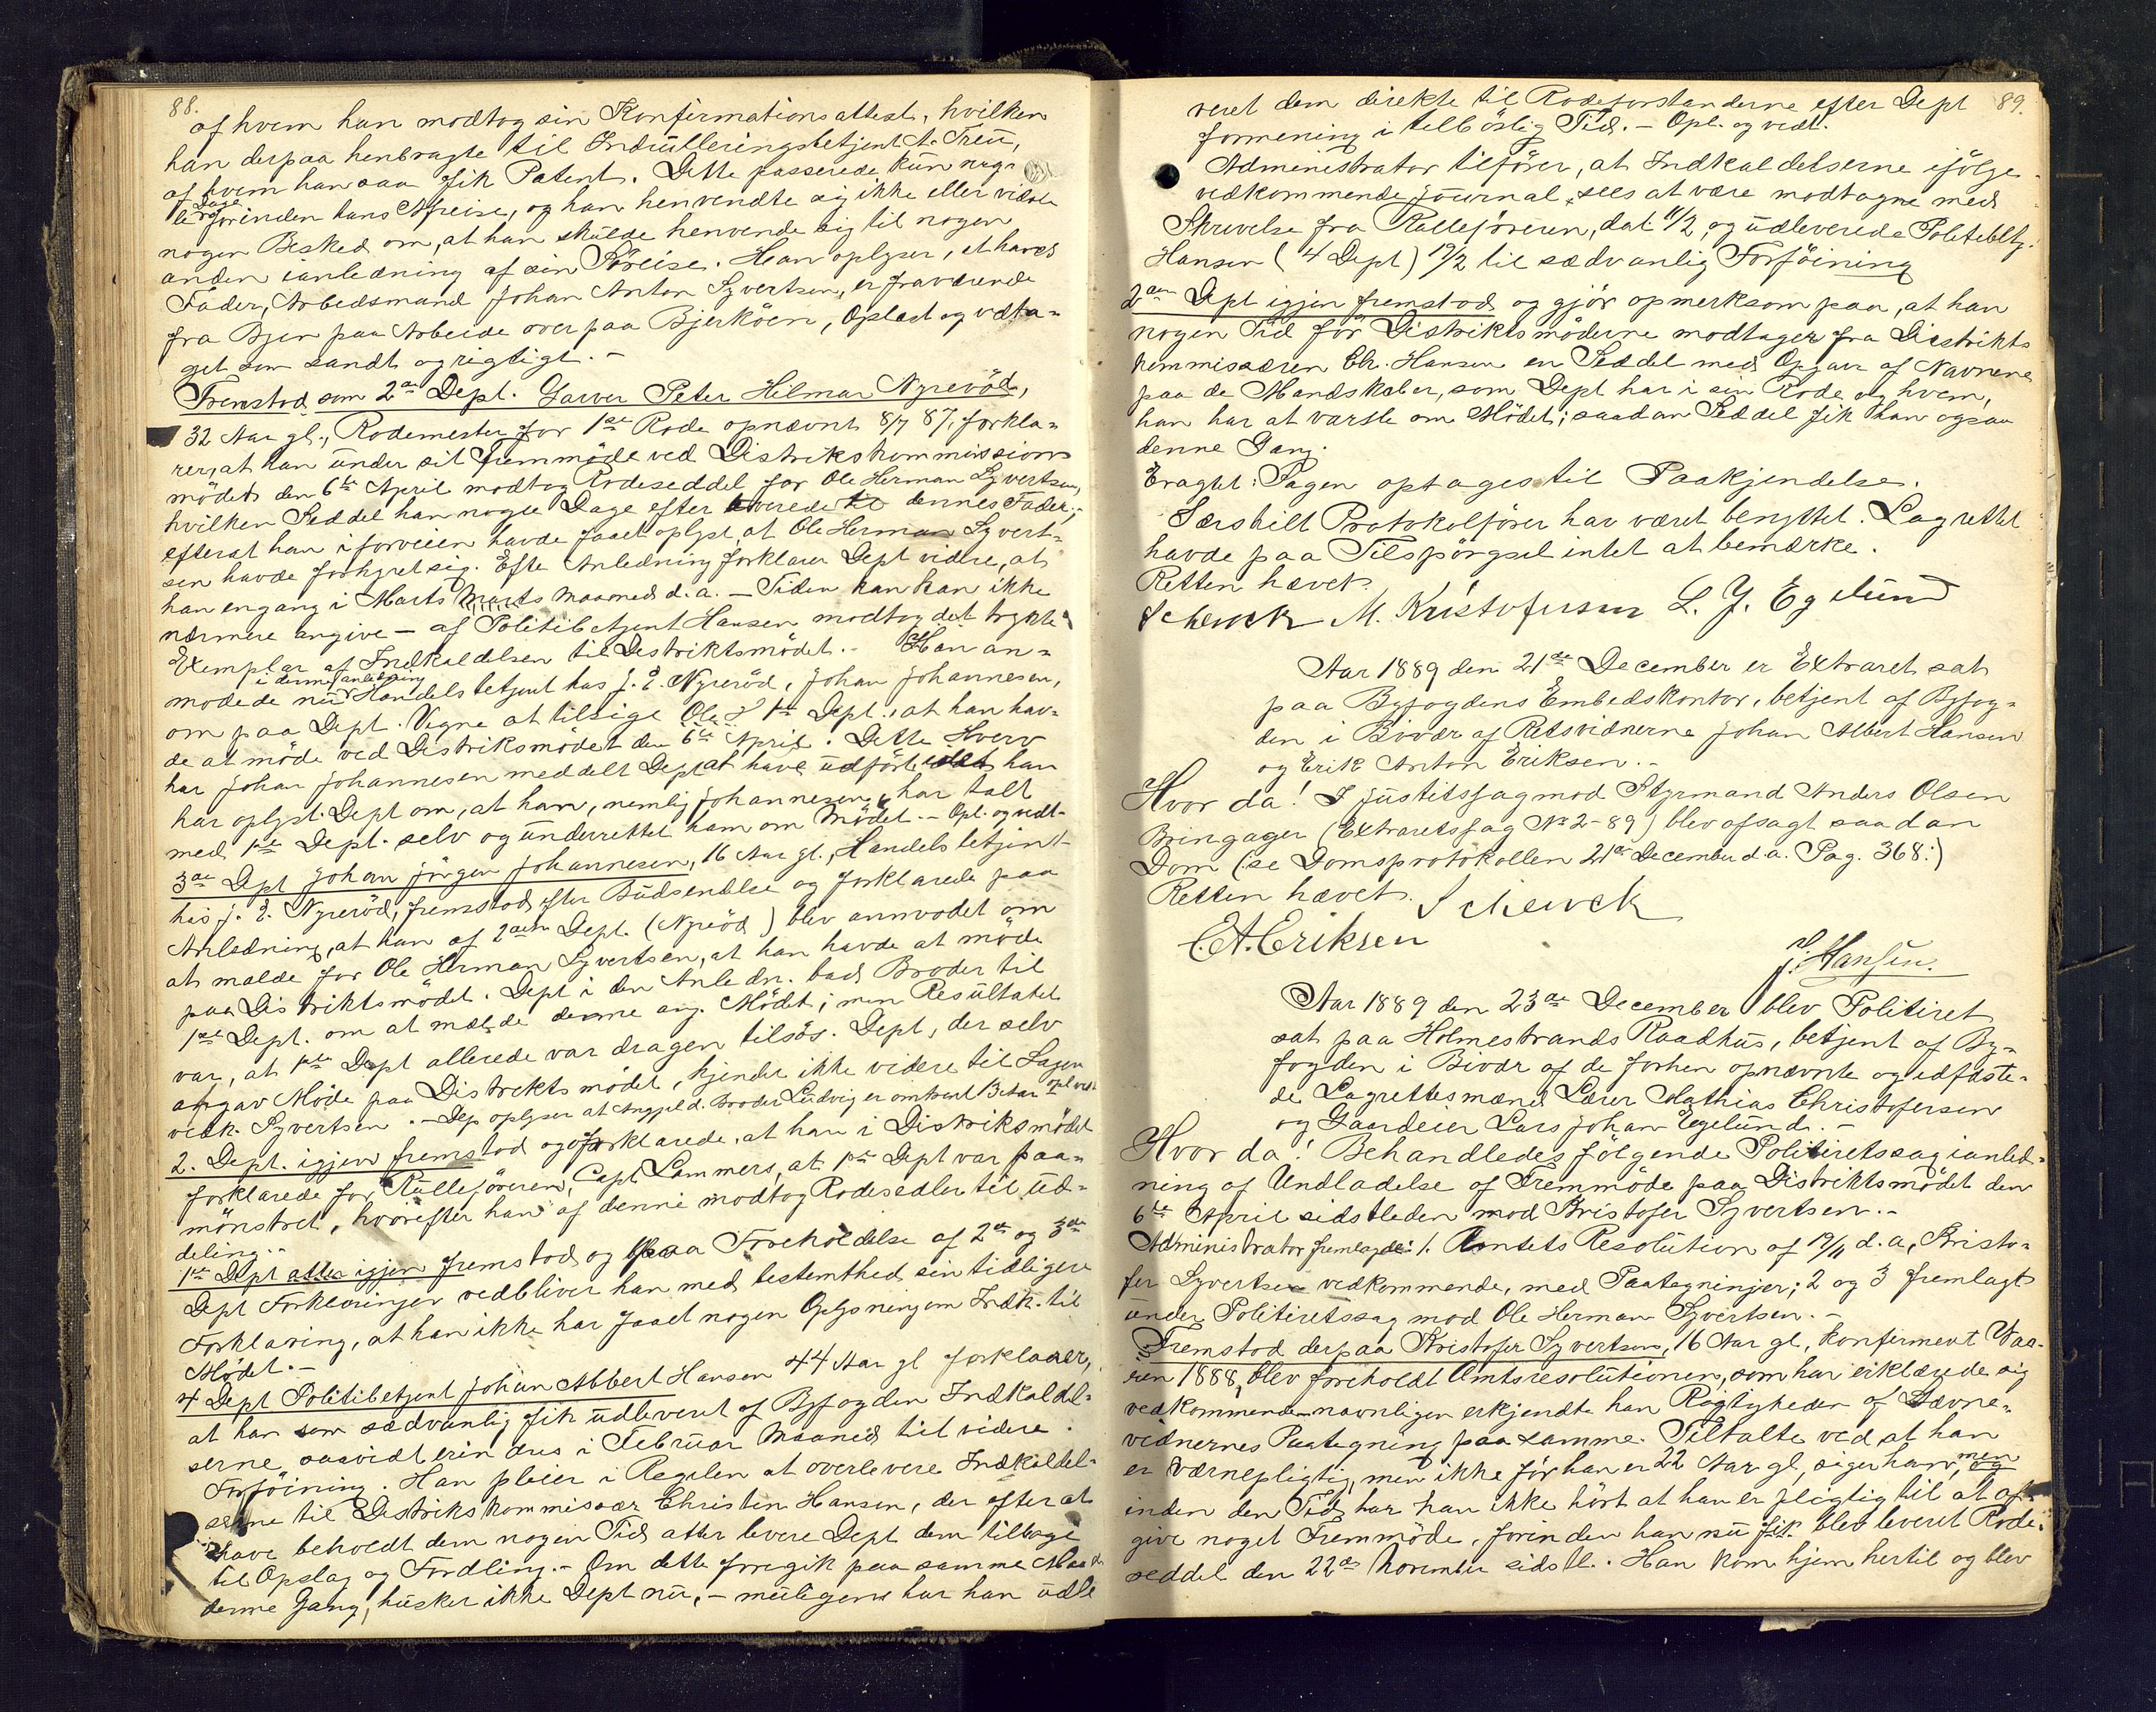 88.
af hvem han modtog sin Konfirmationsattest, hvilken
han derpaa henbragte til Indrulleringsbetjent A. Treu,
af hvem han saa fik Patent. Dette passerede kun nog-
le Dage forinden hans Afreise, og han henvendte sig ikke eller vidste
nogen Besked om, at han skulde henvende sig til nogen
anden ianledning af sin Söreise. Han oplyser, at hans
Fader, Arbeidsmand Johan Anton Syvertsen, er fraværende
fra Byen paa Arbeide over paa Bjerköen, Oplæst og vedta-
get som sandt og rigtigt. -
Fremstod som 2de Dept. Garver Peter Hilmar Nyreröd,
32 Aar gl., Rodemester for 1ste Rode opnævnt 8/7 87, forkla-
rer, at han under sit Fremmöde ved Distrikskommissions
mödet den 6te April modtog Rodeseddel for Ole Herman Syvertsen,
hvilken Seddel han nogle Dage efter leverede til dennes Fader,-
efterat han i forveien havde faaet oplyst, at Ole Herman Syvert-
sen havde forhyret sig. Efte Anledning forklarer Dept videre, at
han engang i Marts Marts maaned d. a. - Tiden kan han ikke
nærmere angive - af Politibetjent Hansen modtog det trykte
Exemplar af Indkaldelsen til Distriktsmödet. - Han an-
modede nu i denne anledning Handelsbetjent hos J. E. Nyreröd, Johan Johannesen,
om paa Dept. Vegne at tilsige Ole 1ste Dept., at han hav-
de at möde ved Distriksmödet den 6te April. Dette Hverv
har Johan Johannesen meddelt Dept at have udfört idet han
har oplyst Dept om, at han, nemlig Johannesen, har talt
med 1ste Dept. selv og underrettet ham om Mödet. - Opl. og vedt-
3die Dept Johan Jörgen Johannesen, 16 Aar gl., Handelsbetjent
hos J. E. Nyreröd, fremstod efter Budsendelse og forklarede paa
Anledning, at han af 2den Dept. (Nyröd) blev anmodet om
at mælde for Ole Herman Syvertsen, at han havde at möde
paa Distriktsmödet. Dept i den Anledn. bad Broder til
1ste Dept. om at mælde denne ang. Mödet; men Resultatet
var, at 1ste Dept allerede var dragen tilsös. Dept, der selv
angav Möde paa Distriktsmödet, kjender ikke videre til Sagen
vedk. Syvertsen. - Dep oplyser at Angjeld. Broder Ludvig er omtrent 13 Aar opl vedt
2. Dept. igjen fremstod og forklarede, at han i Distriksmödet
forklarede for Rulleföreren, Capt Lammers, at 1ste Dept var paa-
mönstret, hvorefter han af denne modtog Rodesedler til ud-
deling. -
1ste Dept atter igjen fremstod og paa Foreholdelse af 2de og 3die
Dept Forklaringer vedbliver han med bestemthed sin tidligere
Forklaring, at han ikke har faaet nogen Oplysning om Indk. til
Mödet. -
4 Dept Politibetjent Johan Albert Hansen 44 Aar gl forklarer,
at han som sædvanlig fik udleveret af Byfogden Indkaldel-
serne saavidt erindres i Februar Maaned til videre
Forföining. Han pleier i Regelen at overlevere Indkaldel-
serne til Distrikskommissær Christen Hansen, der efter at
have beholdt dem nogen Tid atter levere Dept dem tilbage
til Opslag og Fordling. - Om dette foregik paa samme Maade
denne Gang, husker ikke Dept nu, - muligens har han udle
89.
veret dem direkte til Rodeforstanderne efter Dept
formening i tilbörlig Tid. - Opl. og vedt.
Administrator tilförer, at Indkaldelserne ifölge
vedkommende Journal sees at være modtagne med
Skrivelse fra Rulleföreren, dat 11/2, og udleverede Politibtj.
Hansen (4 Dept) 19/2 til sædvanlig Forföining
2den Dept igjen fremstod og gjör opmerksom paa, at han
nogen Tid för Distriktsmöderne modtager fra Distrikts
kommissæren Chr. Hansen en Seddel med Opgave af Navnene
paa de Mandskaber, som Dept har i sin Rode og hvem,
han har at varsle om Mödet; saadan Seddel fik han ogsaa
denne Gang.
Eragtet: Sagen optages til Paakjendelse.
Særskilt Protokolförer har været benyttet. Lagrettet
havde paa Tilspörgsel intet at bemærke.
Retten hævet.
Schenck M. Kristofersen L. J. Egelund
Aar 1889 den 21de December er Extraret sat
paa Byfogdens Embedskontor, betjent af Byfog-
den i Bivær af Retsvidnerne Johan Albert Hansen
og Erik Anton Eriksen. -
Hvor da! I Justitssag mod Styrmand Anders Olsen
Bringager (Extraretssag No 2-89) blev afsagt saadan
Dom (se Domsprotokollen 21de December d.a. Pag. 368:)
Retten hævet. Schenck
E. A. Eriksen
J. Hansen.
Aar 1889 den 23de December blev Politiret
sat paa Holmestrands Raadhus, betjent af By-
fogden i Bivær af de forhen opnævnte og edfæste-
de Lagrettesmænd Lærer Mathias Christofersen
og Gaardeier Lars Johan Egelund. -
Hvor da! Behandledes fölgende Politiretssag ianled-
ning af Undladelse af Fremmöde paa Distriktsmödet den
6te April sidstleden mod Kristofer Syvertsen. -
Administrator fremlagde: 1. Amtets Resolution af 19/11 d.a, Kristo-
fer Syvertsen vedkommende, med Paategninger; 2 og 3 fremlagt
under Politiretssag mod Ole Herman Syvertsen. -
Fremstod derpaa Kristofer Syvertsen, 16 Aar gl, konfirmeret Vaa-
ren 1888, blev foreholdt Amtsresolutionen, som han erklærede sig
vedkommende navnligen erkjendte han Rigtigheden af Stævne-
vidnernes Paategning paa samme. Tiltalte ved at han
er værnepligtig, men ikke för han er 22 Aar gl, siger han, men og
inden den Tid har han ikke hört at han er pligtig til at af-
give noget Fremmöde, forinden han nu fik blev leveret Rode-
seddel den 22de November sidstl. Han kom hjem hertil og blev